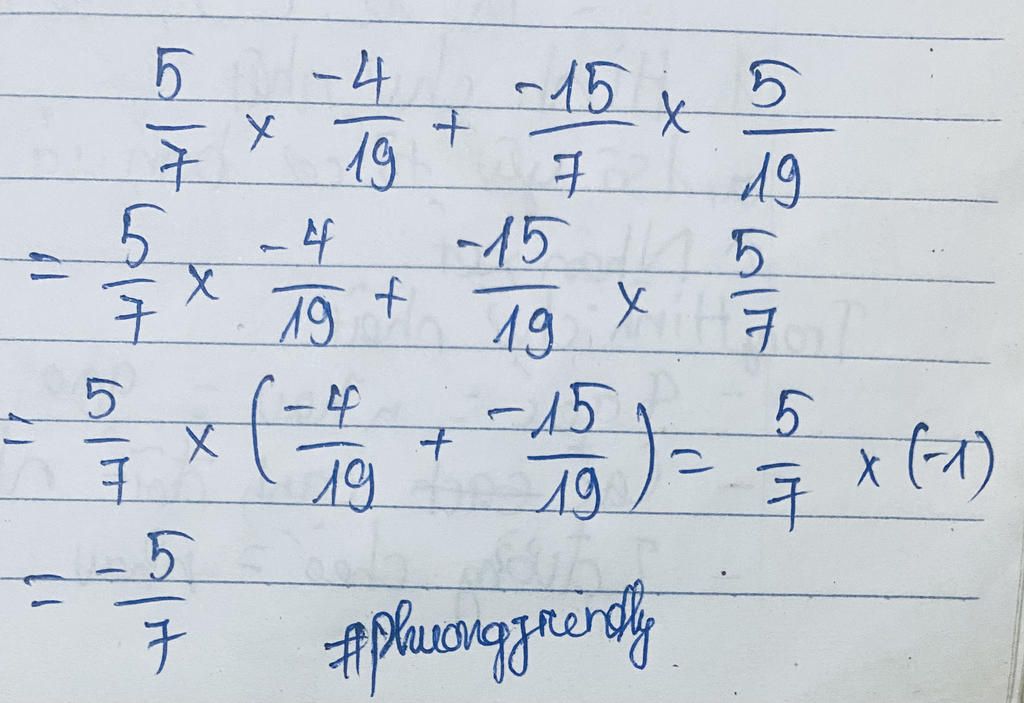 5/7 × -4/19 + -15/7 × 5/19
= 5/7 × -4/19 + -15/19 × 5/7
= 5/7 × (-4/19 + -15/19) = 5/7 × (-1)
= -5/7
#phuongfriendly